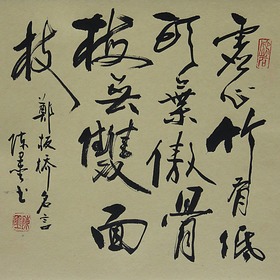 虚心竹有低
头葉傲骨
梅无雙面
枝
鄭板橋名言
陳墨书